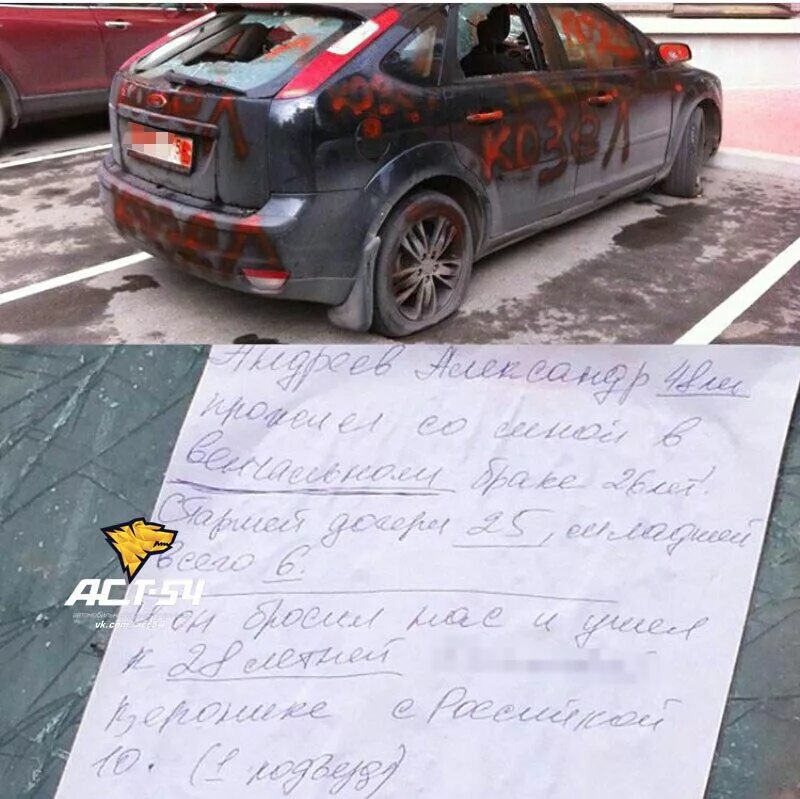 КОЗЕЛ
КОЗЕЛ
КОЗЕЛ
Андреев Александр 48 лет
прожил со мной в
венчальном браке 26 лет!
Старшей дочери 25, младшей
всего 6.
АСТ-54
vk.com/act54
И он бросил нас и ушел
к 28 летней
Веронике с Российской
10. (1 подъезд)